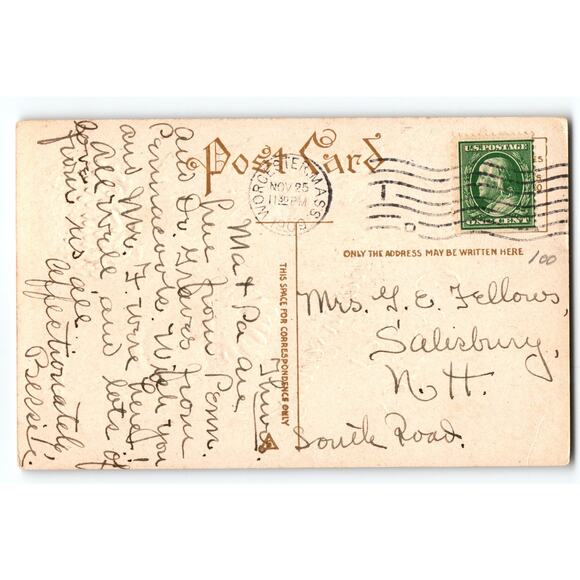 Post Card
WORCESTER, MASS.
NOV 25
11 30 PM
1909
U.S. POSTAGE
ONE CENT
ONLY THE ADDRESS MAY BE WRITTEN HERE
100
THIS SPACE FOR CORRESPONDENCE ONLY
Mrs. G. E. Fellows,
Salisbury,
N. H.
South Road.
Thurs.
Ma & Pa are
here from Penn.
and Dr. Graves from
Penacook. Wish you
and Mr. F. were here!
All well and lots of
love
from us all
affectionately,
Bessie.